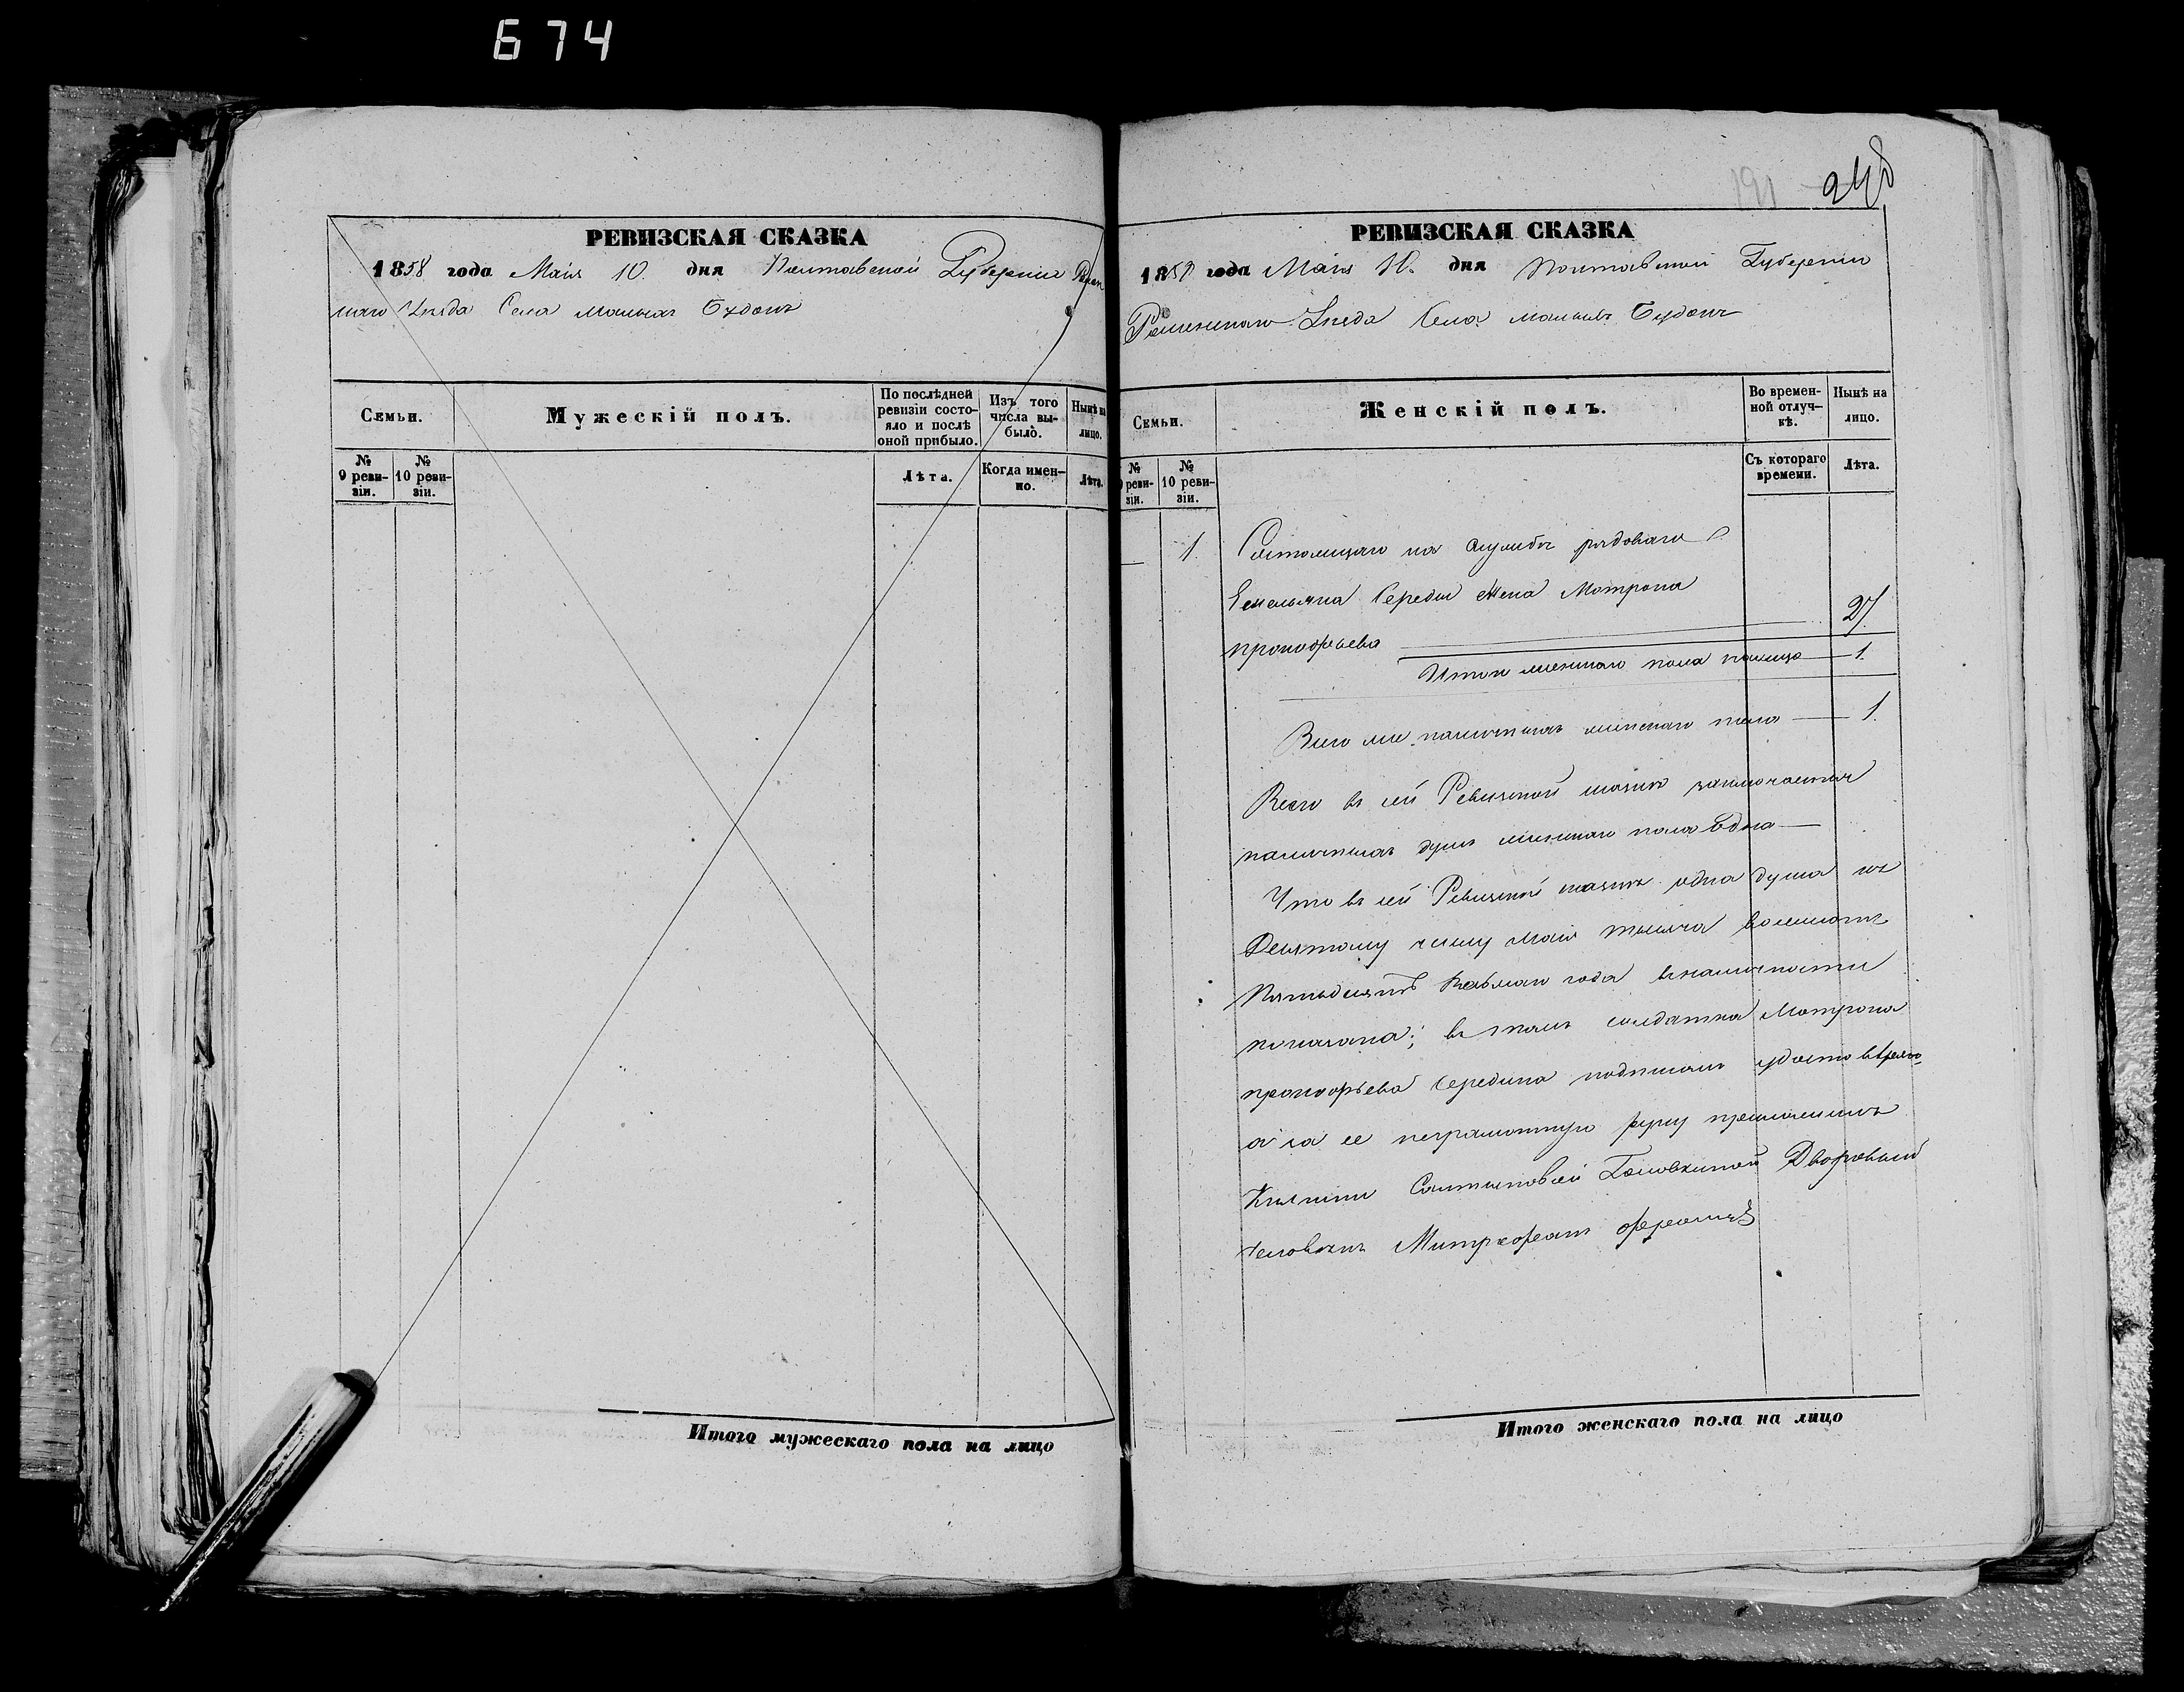 674
РЕВИЗСКАЯ СКАЗКА
1858 года Маія 10. дня Полтавской Губерніи Ромен
скаго Уезда Села малыхъ Будокъ
Семьи.
Мужескій полъ.
По послѣдней
ревизіи состо-
яло и послѣ
оной прибыло.
Изъ того
числа вы-
было.
Нынѣ на
лицо.
№
9 реви-
зіи.
№
10 реви-
зіи.
Лѣта.
Когда имен-
но.
Лѣта.
Итого мужескаго пола на лицо
191 248
РЕВИЗСКАЯ СКАЗКА
1858 года Маія 10. дня Полтавской Губерніи
Роменскаго Уезда Села малыхъ Будокъ
Семьи.
Женскій полъ.
Во времен-
ной отлуч-
кѣ.
Нынѣ на
лицо.
№
9 реви-
зіи.
№
10 реви-
зіи.
Съ котораго
времени.
Лѣта.
1. Состоящаго на службѣ рядоваго
Емельяна Середы жена Мотрона
прокофьева 27
Итого женскаго пола налицо 1.
Всего же наличныхъ женскаго пола 1.
Всего въ сей Ревизской сказкѣ заключается
наличныхъ душъ женскаго пола Одна
Что въ сей Ревизской сказкѣ одна душа къ
Десятому числу маія тысяча восемсотъ
Пятьдесятъ года вналичности
показана; въ томъ солдатка Мотрона
прокофьева Середина подписомъ удостоверяю
а за ее неграмотную руку
Княгини Салтыковой Головкиной Дворовый
человекъ Митрофанъ
Итого женскаго пола на лицо